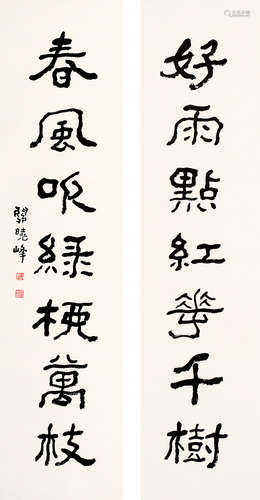 好雨點紅華千樹
春風吹綠桺萬枝
曉峰